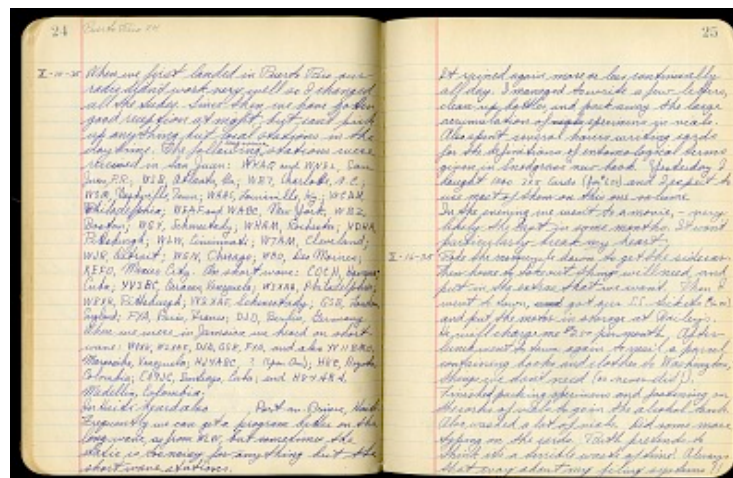 24 Puerto Rico
X-14-35 When we first landed in Puerto Rico our
radio didn't work very well so I changed
all the tubes. Since then we have gotten
good reception at night, but can't pick
up anything but local stations in the
day time. The following stations were
received in San Juan: WKAQ and WNEL, San
Juan, P.R.; WSB, Atlanta, Ga; WBT, Charlotte, N.C.;
WSM, Nashville, Tenn; WHAS, Louisville, Ky; WCAU,
Philadelphia; WEAF and WABC, New York, WBZ,
Boston; WGY, Schenectady; WHAM, Rochester; KDKA,
Pittsburgh; WLW, Cincinnati; WTAM, Cleveland;
WJR, Detroit; WGN, Chicago; WHO, Des Moines;
XEPO, Mexico City. On short wave: COCH, Havana,
Cuba; YV2RC, Caracas, Venezuela; W3XAU, Philadelphia;
W8XK, Pittsburgh; W2XAF, Schenectady; GSB, London,
England; FYA, Paris, France; DJD, Berlin, Germany.
When we were in Jamaica we heard on short
wave: W8XK, W2XAF, DJB, GSB, FYA, and also
Maracaibo, Venezuela; HJ4ABC, ? HKE, Bogota,
Colombia; CO9JC, Santiago, Cuba; and HJ4ABE,
Medellin, Colombia;
In Haiti heard also Port au Prince, Haiti.
Frequently we can get a program better on the
long wave, as from WLW, but sometimes the
static is too noisy for anything but the
short wave stations.
25
It rained again more or less continually
all day. I managed to write a few letters,
clean up bottles, and pack away the large
accumulation of specimens in vials.
Also spent several hours writing cards
for the definitions of entomological terms
given in Snodgrass new book. Yesterday I
bought 1000 3x5 cards and I expect to
use most of them on this one volume.
In the evening we went to a movie, - very
likely the last in some months. It won't
particularly break my heart.
X-16-35 Rode the motorcycle down to get the sidecar
then home to take out things we'll need and
put in the extras that we want. Then I
went to town, got our SS tickets
and put the motor in storage at Bailey's.
He will charge me $2.50 per month. After
lunch went to town again to mail a parcel
containing books and clothes to Washington,
things we don't need (or never did!).
Finished packing specimens and
the corks of vials to go in the alcohol tank.
Also washed a lot of vials. Did some more
typing on the cards. Faith pretends to
think it's a terrible waste of time! Always
that way about my filing systems!!